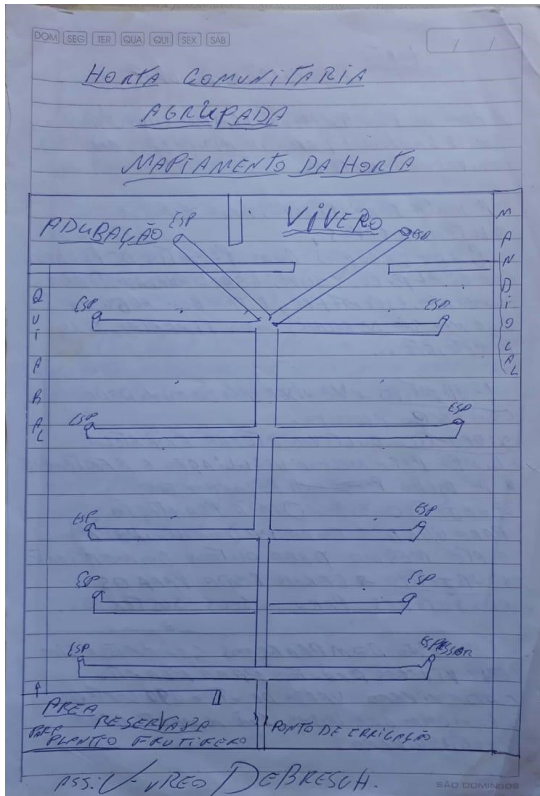 DOM SEG TER QUA QUI SEX SÁB
HORTA COMUNITARIA
AGRUPADA
MAPIAMENTO DA HORTA
ADUBAÇÃO
ESP
VIVERO
ESP
MANDIOCAL
QUIABAL
ESP
ESP
ESP
ESP
ESP
ESP
ESP
ESP
ESP
AREA
RESERVADA
PLANTEO FRUTIFERO
PONTO DE IRRIGAÇÃO
ASS:
DEBRESCH.
SÃO DOMINGOS